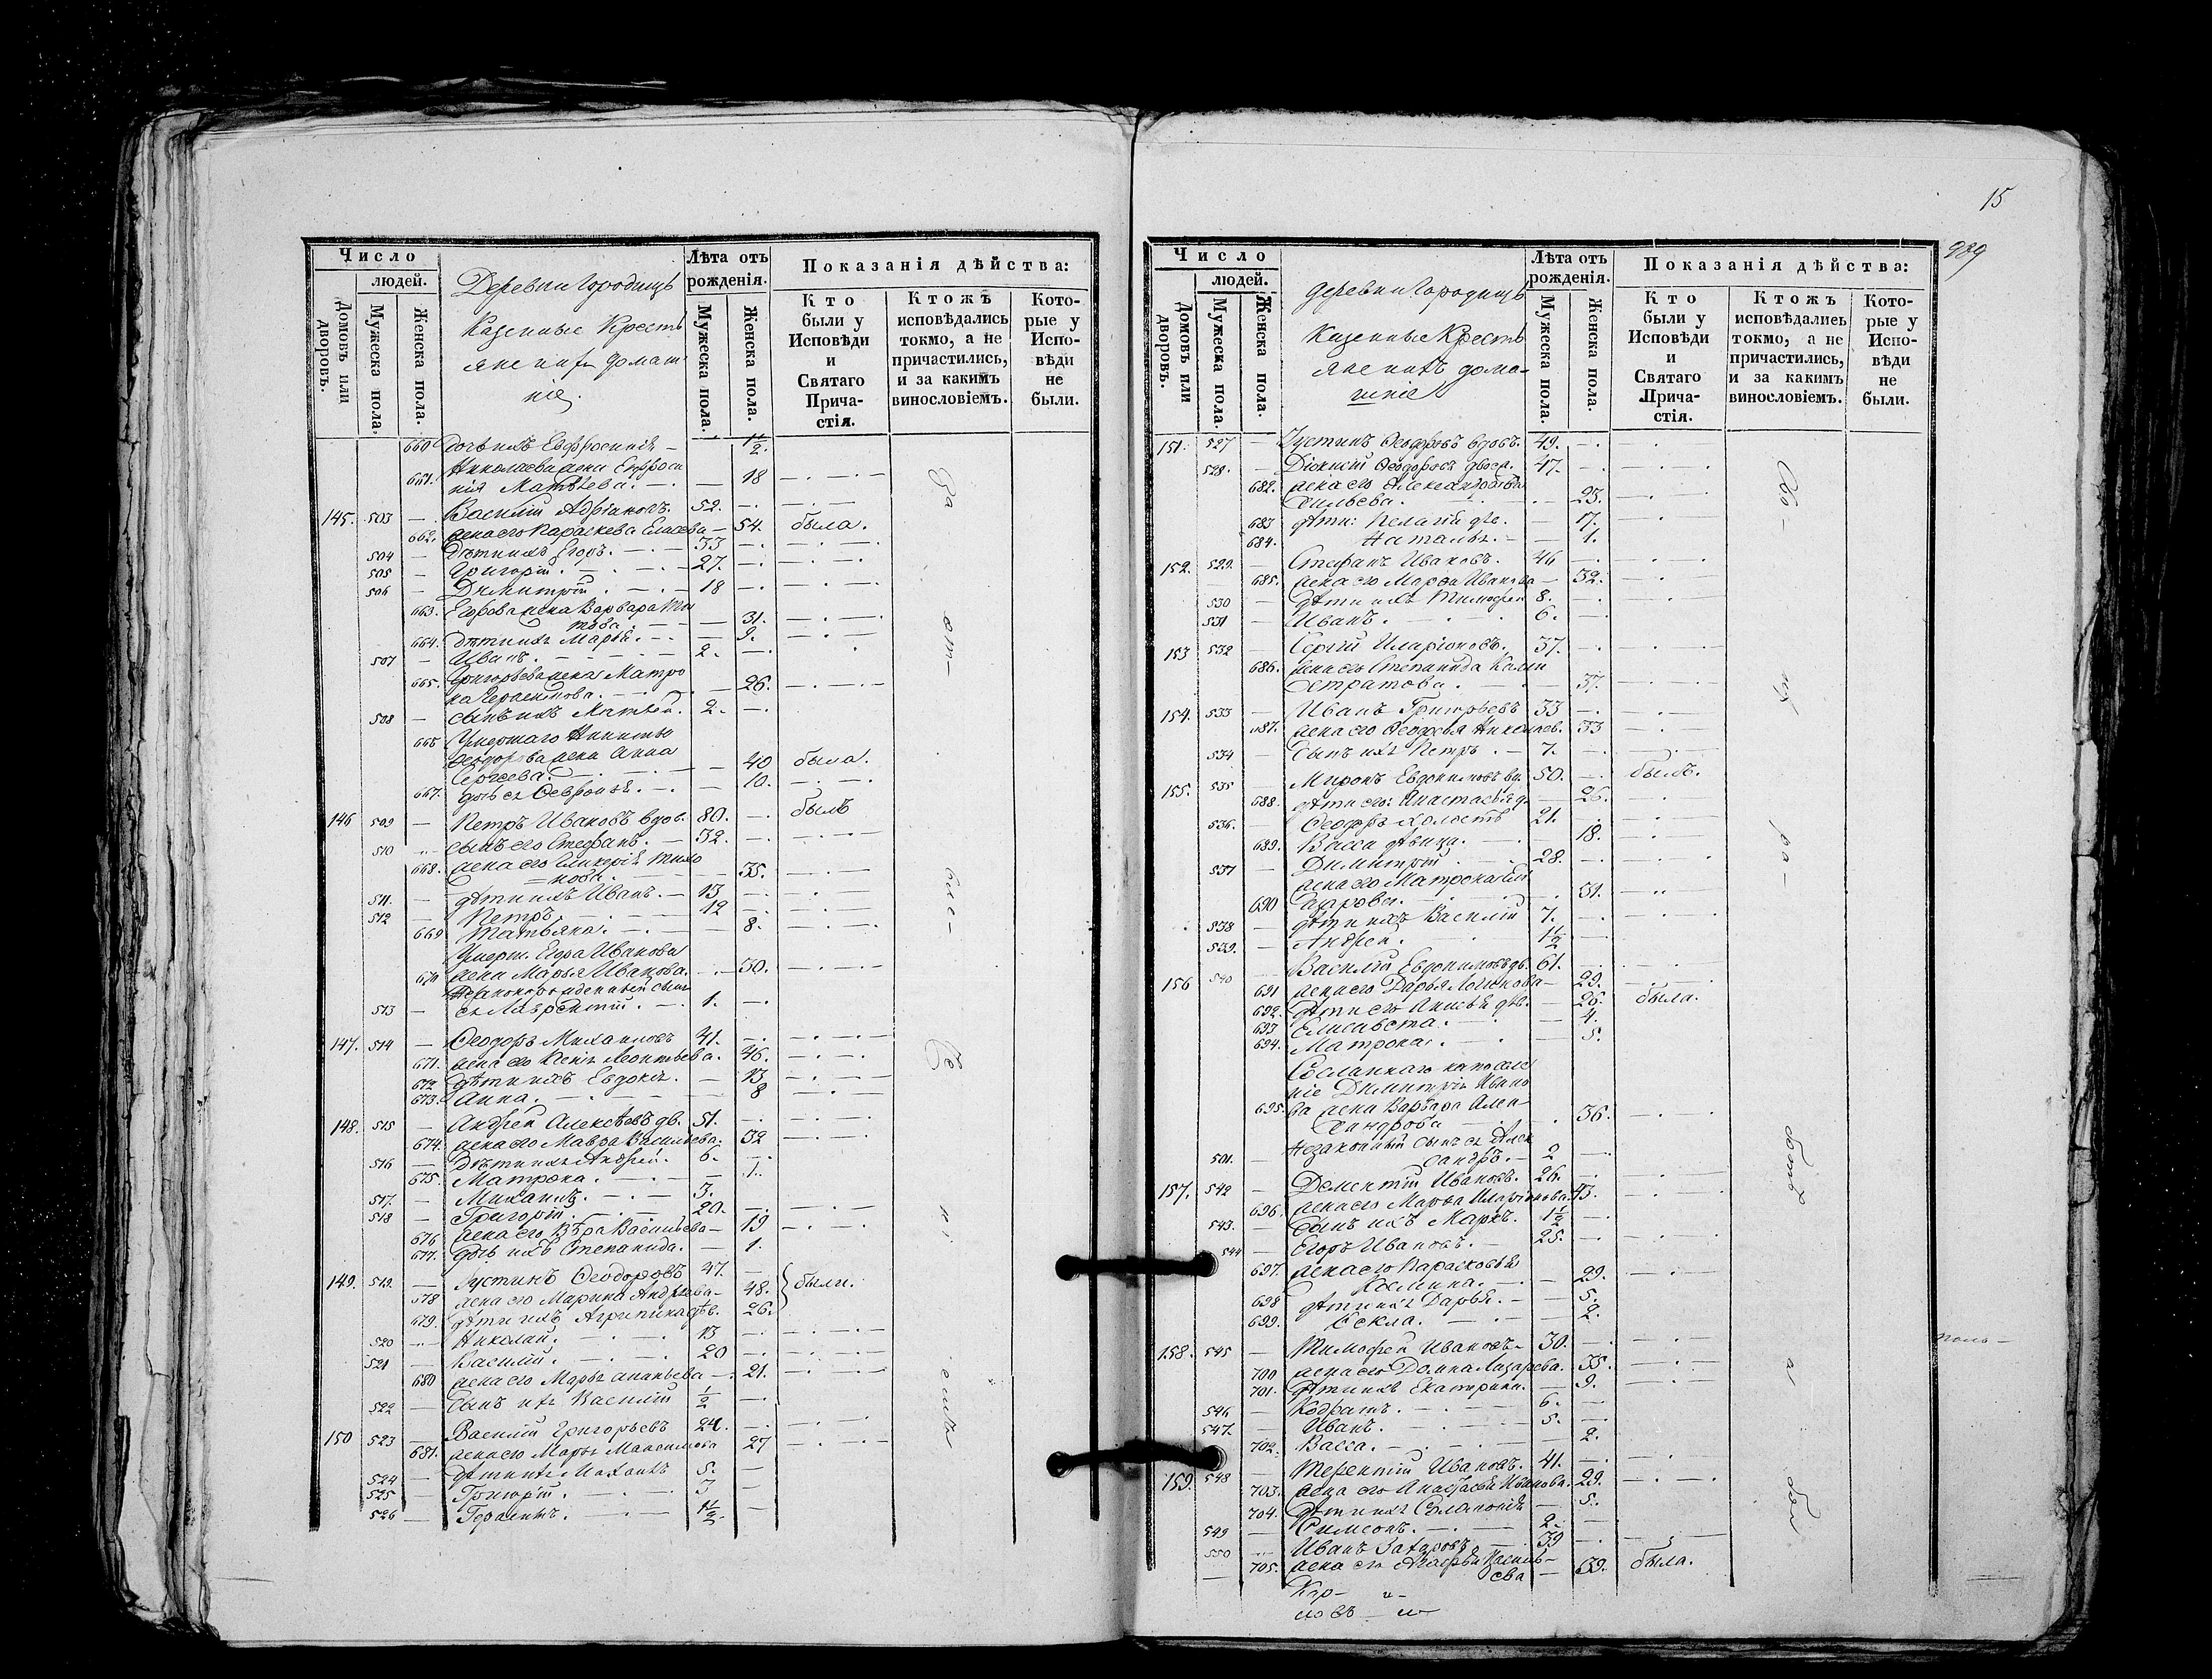 Число
людей.
Домовъ или дворовъ.
Мужеска пола.
Женска пола.
Деревни Городищъ
Казенные Кресть
яне ихъ домаш
ніе.
Лѣта отъ рожденія.
Мужеска пола.
Женска пола.
Показанія дѣйства:
Кто были у Исповѣди и Святаго Прича-стія.
Ктожъ исповѣдались токмо, а не причастились, и за какимъ винословіемъ.
Кото-рые у Испо-вѣди не были.
660 дочь ихъ Евфросинія — 1½.
Николаева жена Евфроси
661. нія Матвѣева. — 18
145. 503 — Василій Адріановъ. 52. —
662. жена его Параскева Елисѣева — 54. была.
504 — Дѣти ихъ Егоръ. 33 —
505 — Григорій. — 27. —
506 — Димитрій. — 18 —
663. Егорова жена Варвара Ти
това. — 31.
664. дѣти ихъ Марья. — 9.
507 — Иванъ. — 2. —
Григорьева жена Матро
665. на Герасимова. — 26.
508 — сынъ ихъ Матвей. 2. —
Умершаго Никиты
Ѳеодорова жена Анна
Сергѣева. — 40 была.
667. дочь ея Ѳевронія. — 10.
146 509 — Петръ Ивановъ вдов. 80. — былъ
510 — сынъ его Стефанъ. — 32. —
668. жена его Гликерія Тихо
нова. — 35.
511. — дѣти ихъ Иванъ. — 13 —
512 — Петръ. — 12 —
669 Татьяна. — 8.
Умерш. Егора Иванова
670 жена Марья Иванова. — 30.
Незаконорожденный сынъ
513 — ея Лаврентій. — 1. —
147. 514 — Ѳеодоръ Михаиловъ 41. —
671. жена его Ксенія Леонтьева. 46.
672 дѣти ихъ Евдокія. — 13
673. Анна. — 8
148. 515 — Андрей Алексѣевъ дв. 51. —
674. жена его Мавра Васильева. 32
516 — Дѣти ихъ Андрей. 6. —
675. Матрона. — 1.
517. — Михаилъ. — 3.
518 — Григорій. — 20. —
676 жена его Вѣра Васильева — 19
677. дочь ихъ Степанида. — 1.
149. 519. — Іустинъ Ѳеодоровъ 47. —
678 жена его Марина Андреева — 48. были.
679. дѣти ихъ Агрипина дѣв. 26.
520 — Николай. — 13 —
521 — Василій. — 20 —
680 жена его Марья Ананьева — 21.
522 — Сынъ ихъ Василій ½ —
150 523 — Василій Григорьевъ 24. —
681. жена его Марья Максимова 27
524 — дѣти ихъ 5. —
525 — Григорій. — 3 —
526 — Герасимъ. — 1½. —
15
Число
людей.
Домовъ или дворовъ.
Мужеска пола.
Женска пола.
деревни Городищъ
Казенные Кресть
яне ихъ дома-
шніе
Лѣта отъ рожденія.
Мужеска пола.
Женска пола.
Показанія дѣйства:
Кто были у Исповѣди и Святаго Прича-стія.
Ктожъ исповѣдались токмо, а не причастились, и за какимъ винословіемъ.
Кото-рые у Испо-вѣди не были.
151. 527 — Іустинъ Ѳеодоровъ вдов. 49. —
528. — Діонисій Ѳеодоровъ 47. —
682. жена его Александра Ва
сильева. — 23.
683 дѣти: Пелагія дѣв. — 17.
684. Наталья. — 1.
152. 529. — Стефанъ Ивановъ. 46 —
685. жена его Марѳа Иванова — 32.
530 — дѣти ихъ Тимоѳей 8. —
531 — Иванъ. — 6. —
153 532 — Сергій Иларіоновъ. 37. —
686. жена его Степанида Кали
стратова. — 37.
154. 533 — Иванъ Григорьевъ 33 —
687. жена его Ѳеодосья Николаев. 33
534 — Сынъ ихъ Петръ. — 7. —
155. 535 — Миронъ Евдокимовъ вд. 50. — былъ.
688. дѣти его: Анастасія д. — 26.
536. — Ѳеодоръ холостъ 21.
689. Васса дѣвица. — 18.
537 — Димитрій 28. —
690 31.
538 — дѣти ихъ Василій 7. —
539. — Андрей. 1½ —
156 540 — Василій Евдокимовъ дв. 61. —
691 жена его Дарья Логинова — 29.
692. дѣти его Анисья дѣв. — 26. была.
693 Елисавета. — 4.
694. Матрона. — 5.
Сосланнаго на поселе
ніе Димитрія Ивано
695. ва жена Варвара Алек
сандрова — 36.
Незаконный сынъ ея Алек
501. сандръ. — 2 —
157. 542 — Дементій Ивановъ. 26. —
696. жена его Марья Иларіонова. 43.
543. — Сынъ ихъ Маркъ. 1½ —
544 — Егоръ Ивановъ. — 25. —
697. жена его Парасковья
Космина. — 29.
698 дѣти ихъ Дарья. — 5.
699. Ѳекла. — 2.
158. 545 — Тимоѳей Ивановъ 30. —
700 жена его Домна Лазарева. 35.
701. дѣти ихъ Екатерина. — 9.
546 — Кодратъ. — 6. —
547. — Иванъ. — 5. —
702. Васса. — 2.
159. 548 — Терентій Ивановъ. 41. —
703. жена его Анастасья Иванова. 29.
704. дѣти ихъ Соломонія — 5.
549 — Симеонъ. — 2. —
550 — Иванъ Захаровъ. — 39 —
705. жена его Агаѳья Василь-
ева — 39. была.